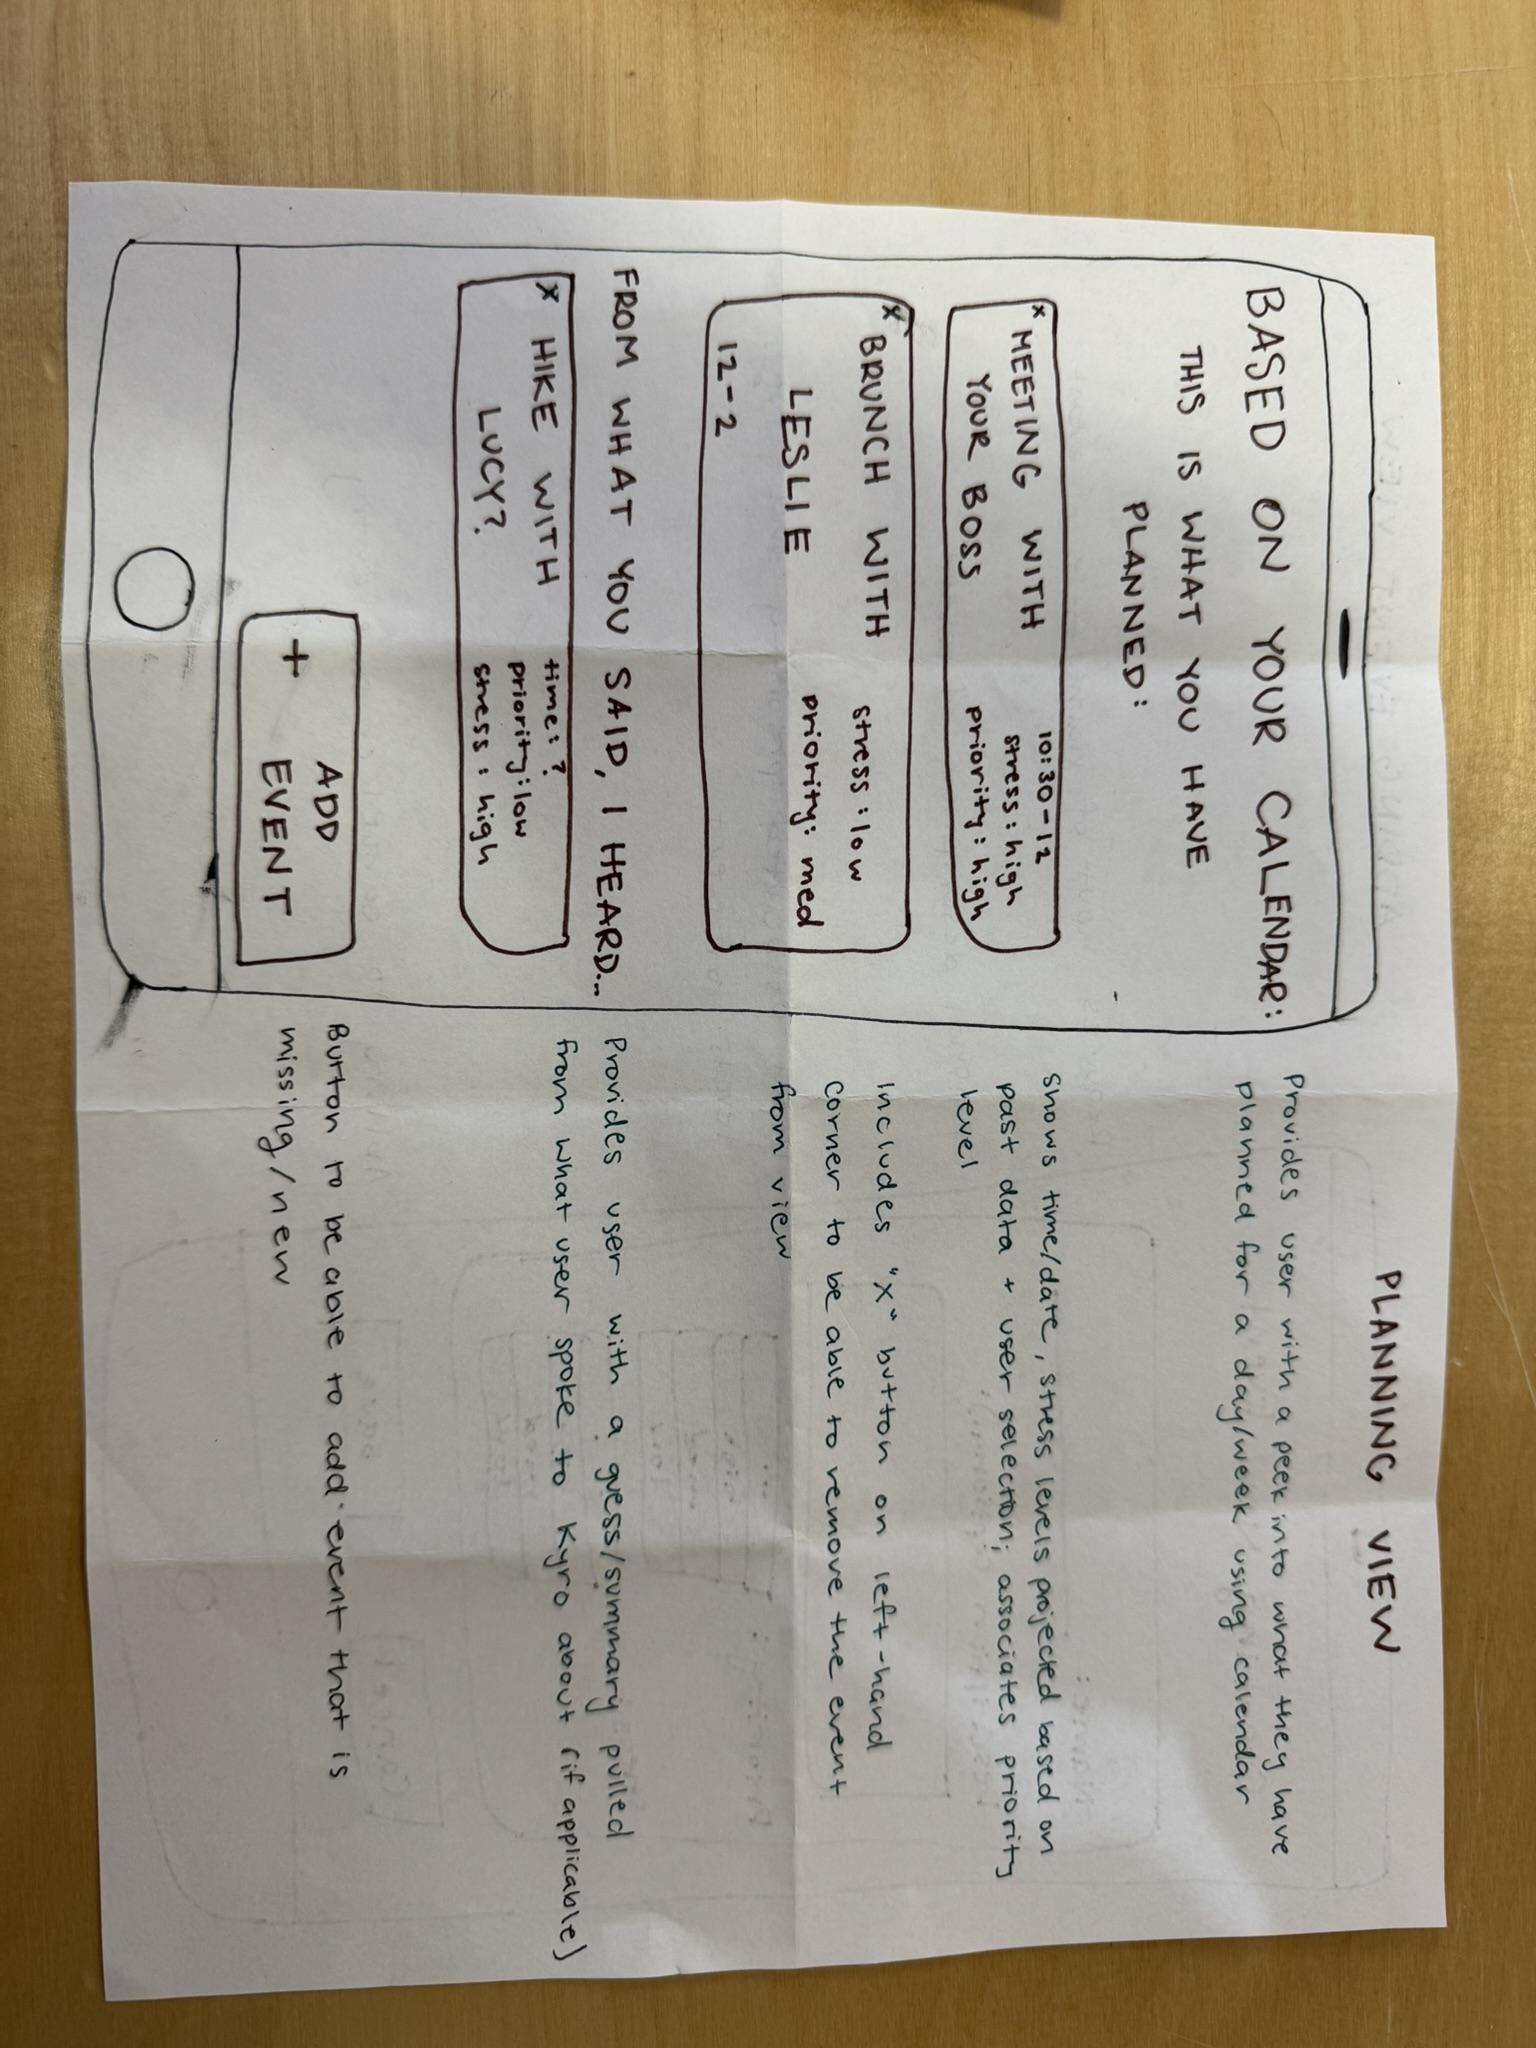 PLANNING VIEW
BASED ON YOUR CALENDAR:
THIS IS WHAT YOU HAVE
PLANNED:
x MEETING WITH
YOUR BOSS
10:30-12
stress: high
priority: high
x BRUNCH WITH
LESLIE
12-2
stress: low
priority: med
FROM WHAT YOU SAID, I HEARD...
x HIKE WITH
LUCY?
time: ?
priority: low
stress: high
+ ADD
EVENT
Provides user with a peek into what they have
planned for a day/week using calendar
shows time/date, stress levels projected based on
past data + user selection; associates priority
level
includes "x" button on left-hand
corner to be able to remove the event
from view
Provides user with a guess/summary pulled
from what user spoke to Kyro about (if applicable)
Button to be able to add event that is
missing/new